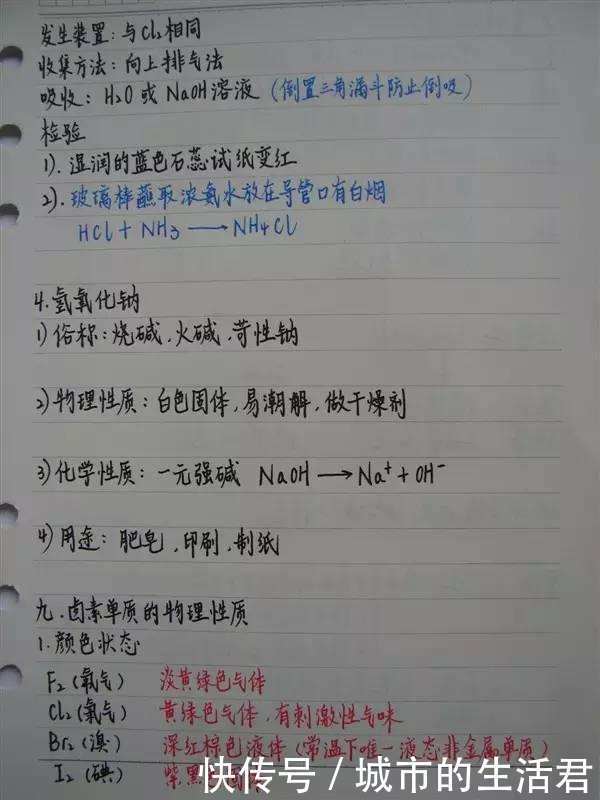 发生装置：与Cl₂相同
收集方法：向上排气法
吸收：H₂O或NaOH溶液（倒置三角漏斗防止倒吸）
检验
1).湿润的蓝色石蕊试纸变红
2).玻璃棒蘸取浓氨水放在导管口有白烟
HCl + NH₃ ⟶ NH₄Cl
4.氢氧化钠
1)俗称：烧碱，火碱，苛性钠
2)物理性质：白色固体，易潮解，做干燥剂
3)化学性质：一元强碱 NaOH ⟶ Na⁺ + OH⁻
4)用途：肥皂，印刷，制纸
九.卤素单质的物理性质
1.颜色状态
F₂(氟气) 淡黄绿色气体
Cl₂(氯气) 黄绿色气体，有刺激性气味
Br₂(溴) 深红棕色液体(常温下唯一液态非金属单质)
I₂(碘) 紫黑
快传号/城市的生活君